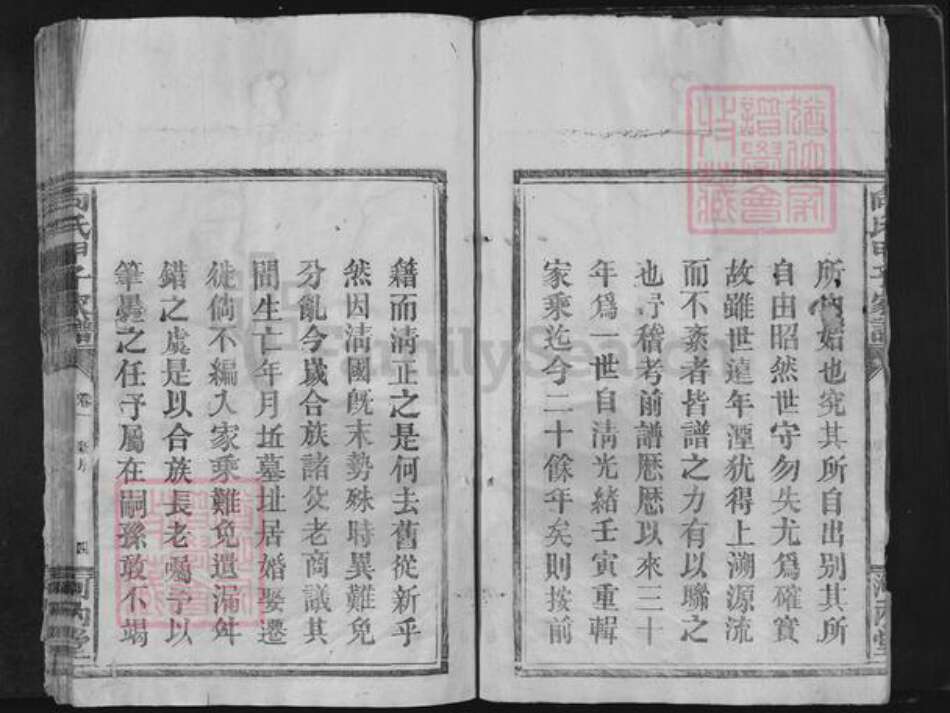 所始也究其所自出别其所
自由昭然世守勿失尤爲確實
故雖世遠年湮犹得上溯源流
而不紊者皆譜之力有以聯之
也予稽考前譜歷歷以來三十
年爲一世自清光緒壬寅重輯
家乘迄今二十餘年矣則按前
籍而清正之是何去舊從新乎
然因清國既末勢殊時異難免
分亂今歲合族諸父老商議其
間生亡年月坵墓址居婚娶遷
徙倘不編入家乘難免遺漏舛
錯之處是以合族長老囑予以
筆墨之任予屬在嗣孫敢不竭
向氏甲子家譜
卷一
四
河內堂
FamilySearch